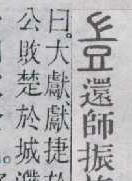 豈還師振
曰。大獻獻捷於
公敗楚於城濮